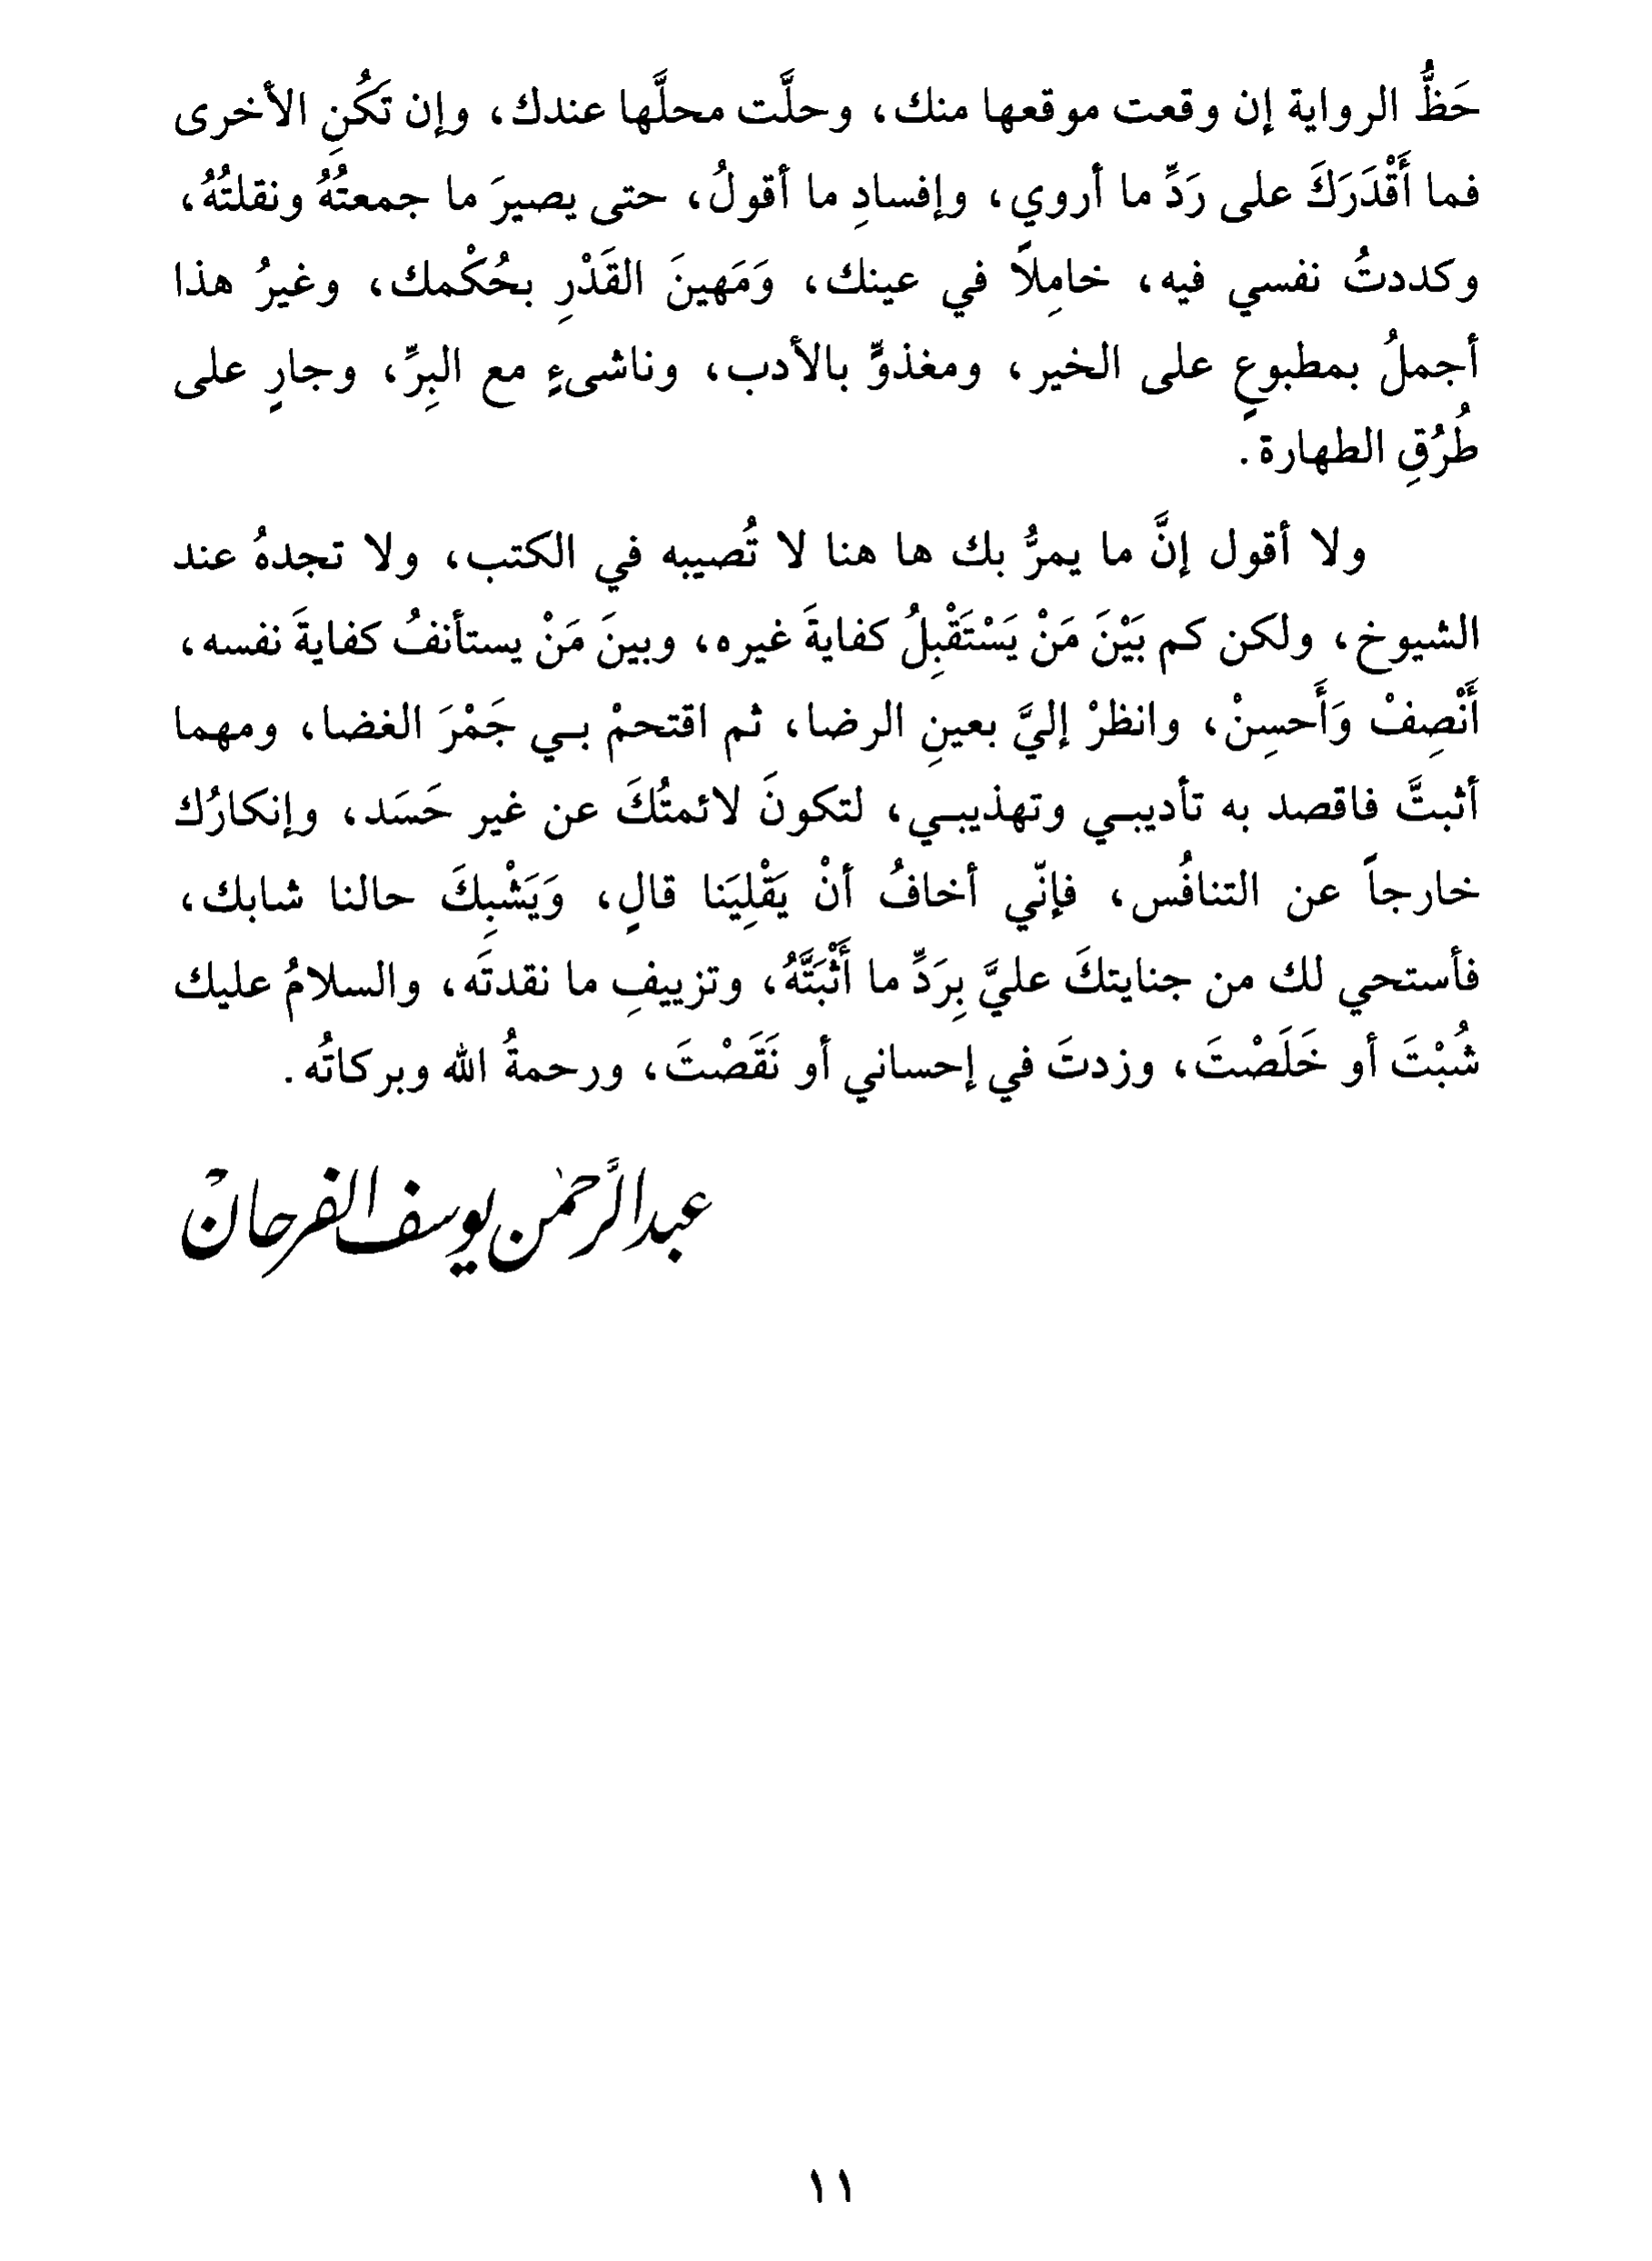 حَظُّ الرواية إن وقعت موقعها منك، وحلَّت محلَّها عندك، وإن تَكُنِ الأخرى
فما أَقْدَرَكَ على رَدِّ ما أروي، وإفسادِ ما أقولُ، حتى يصيرَ ما جمعتُهُ ونقلتُهُ،
وكددتُ نفسي فيه، خامِلاً في عينك، وَمَهينَ القَدْرِ بحُكْمك، وغيرُ هذا
أجملُ بمطبوعٍ على الخير، ومغذوٍّ بالأدب، وناشىءٍ مع البِرِّ، وجارٍ على
طُرُقِ الطهارة.
ولا أقول إنَّ ما يمرُّ بك ها هنا لا تُصيبه في الكتب، ولا تجدهُ عند
الشيوخ، ولكن كم بَيْنَ مَنْ يَسْتَقْبِلُ كفايةَ غيره، وبينَ مَنْ يستأنفُ كفايةَ نفسه،
أَنْصِفْ وَأَحسِنْ، وانظرْ إليَّ بعينِ الرضا، ثم اقتحمْ بـي جَمْرَ الغضا، ومهما
أثبتَّ فاقصد به تأديبـي وتهذيبـي، لتكونَ لائمتُكَ عن غير حَسَد، وإنكارُك
خارجاً عن التنافُس، فإنّي أخافُ أنْ يَقْلِيَنا قالٍ، وَيَشْبِكَ حالنا شابك،
فأستحي لك من جنايتكَ عليَّ بِرَدِّ ما أَثْبَتَّهُ، وتزييفِ ما نقدتَه، والسلامُ عليك
شُبْتَ أو خَلَصْتَ، وزدتَ في إحساني أو نَقَصْتَ، ورحمةُ الله وبركاتُه.
عبدالرَّحمٰن يوسف الفرحان
١١